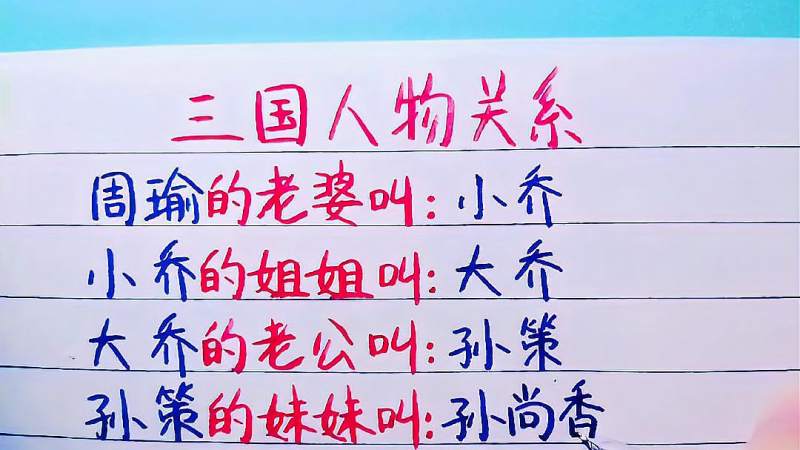 三国人物关系
周瑜的老婆叫:小乔
小乔的姐姐叫:大乔
大乔的老公叫:孙策
孙策的妹妹叫:孙尚香